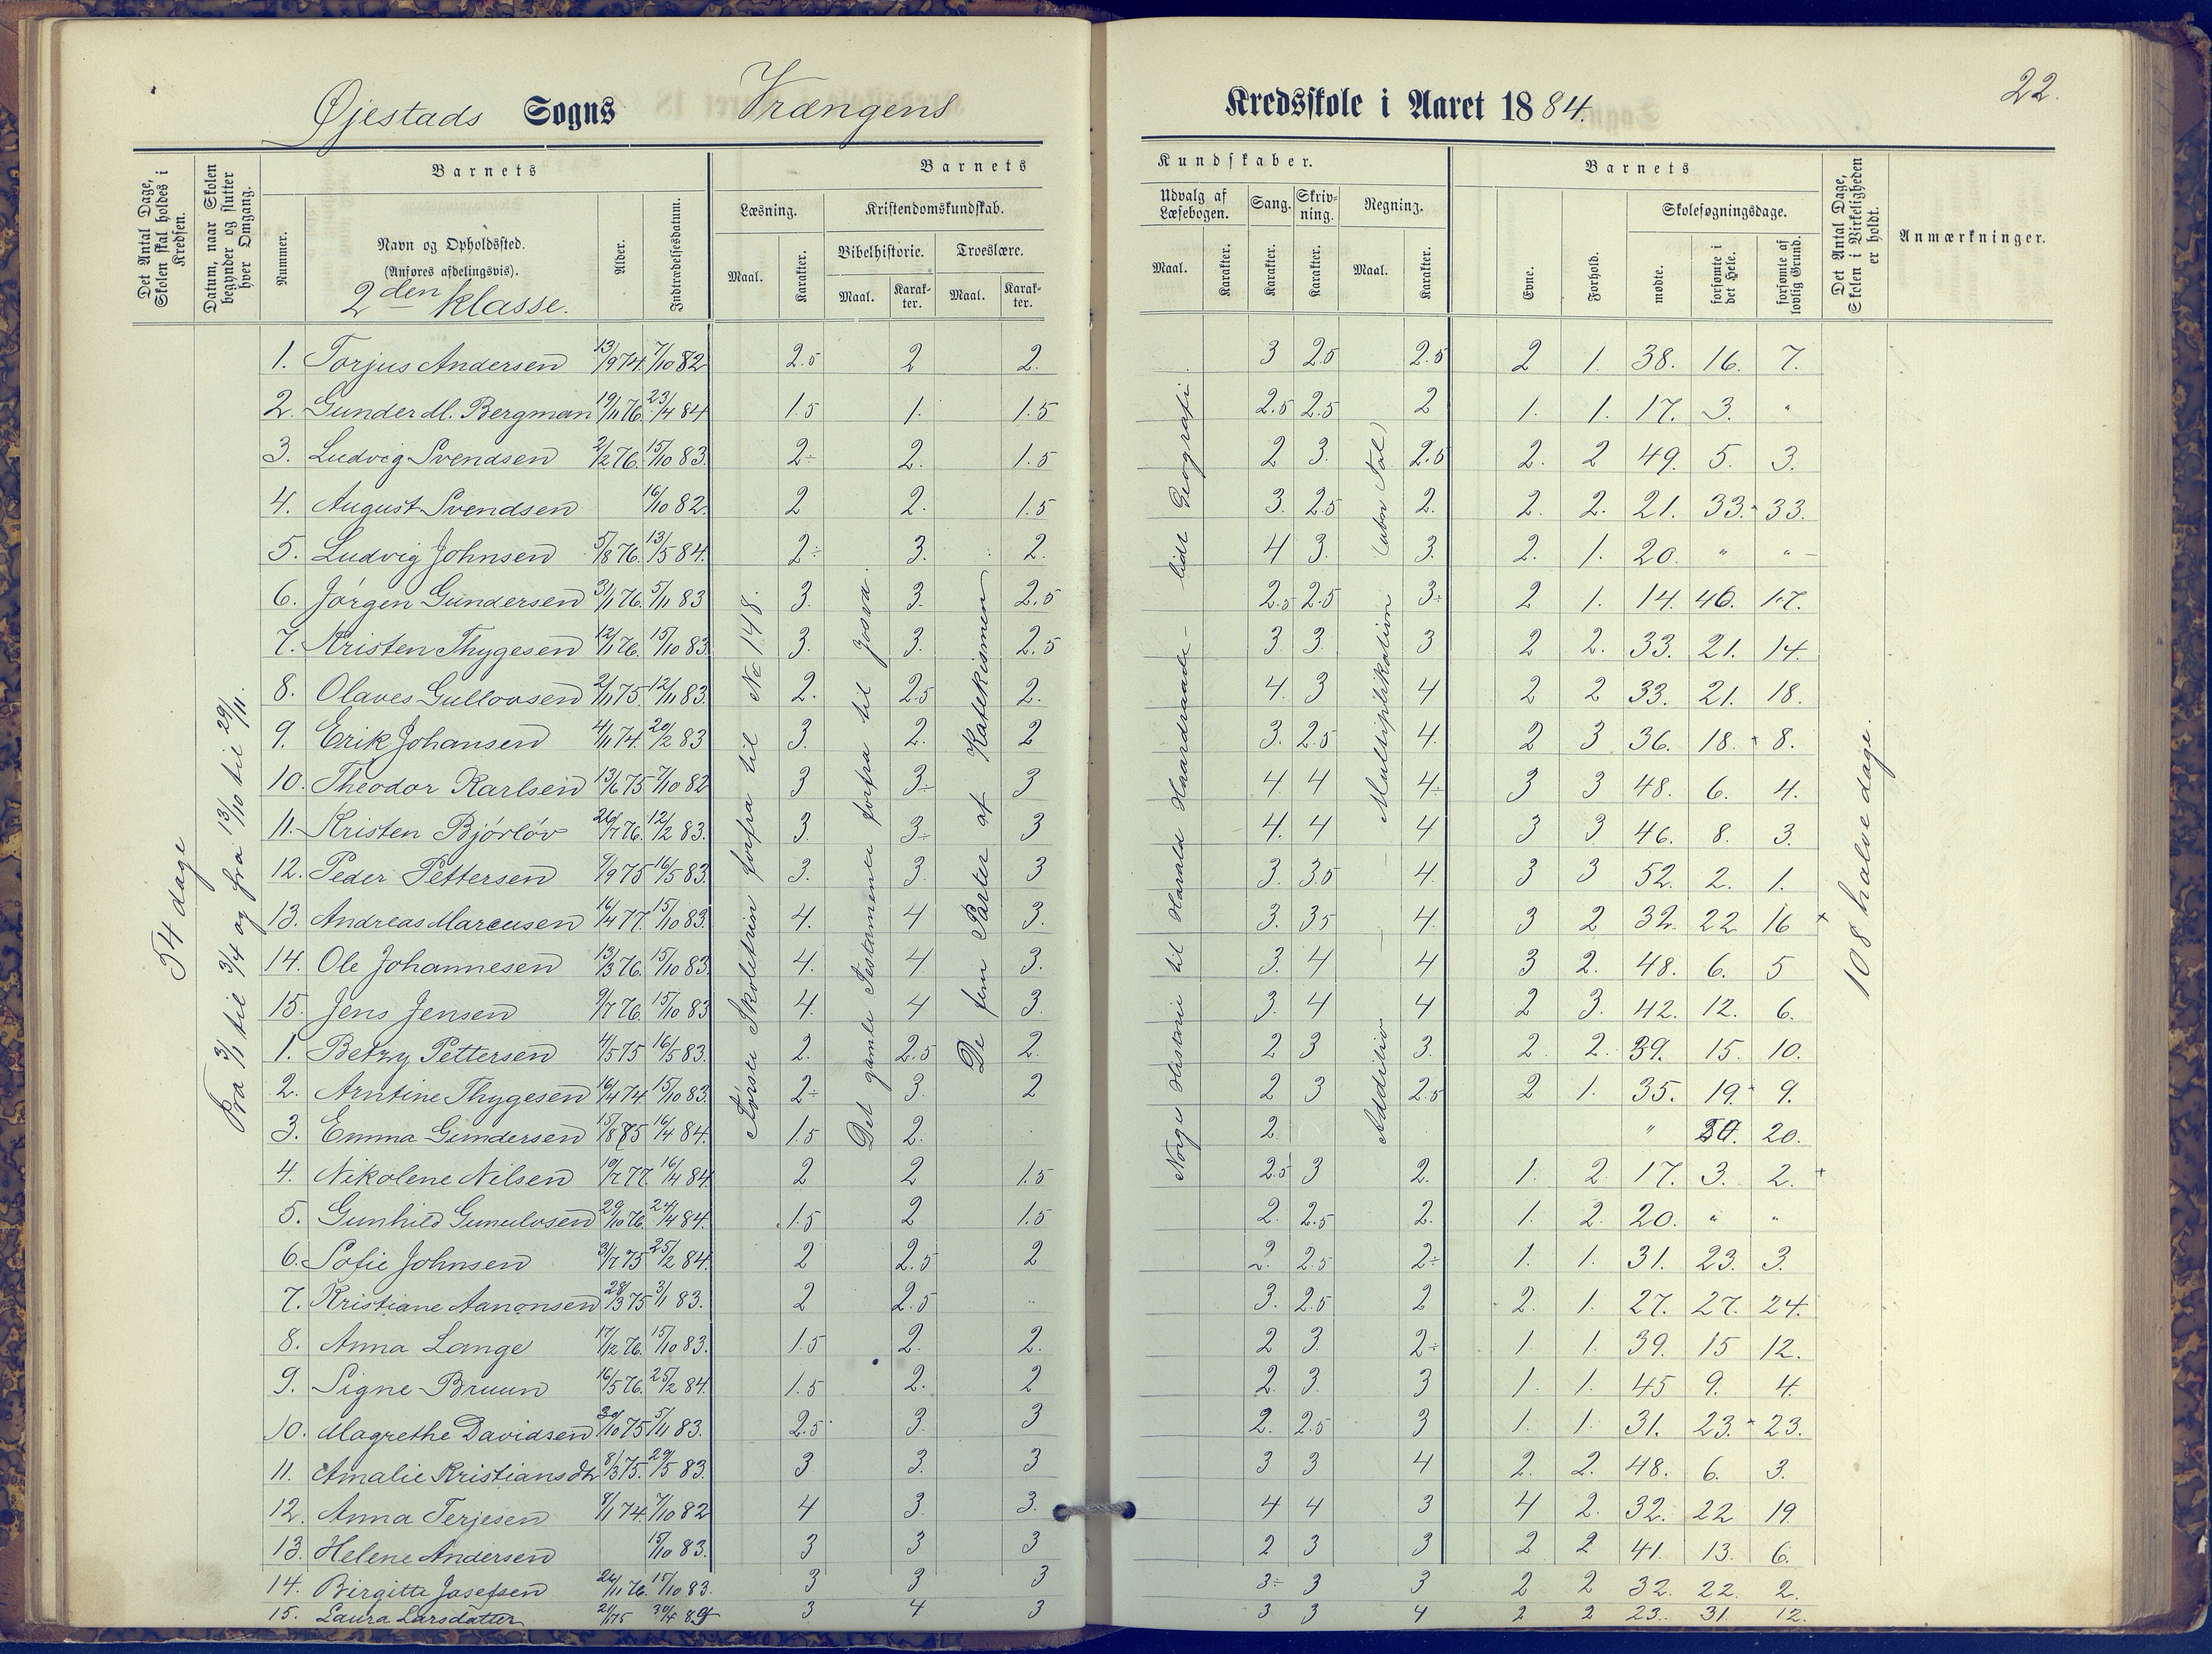 22.
Øjestads Sogns Vrængens Kredsskole i Aaret 1884.
Det Antal Dage, Skolen skal holdes i Kredsen.
Datum, naar Skolen begynder og slutter hver Omgang.
Barnets
Nummer.
Navn og Opholdssted.
(Anføres afdelingsvis).
2den klasse.
Alder.
Indtrædelsesdatum.
Barnets
Læsning.
Maal.
Karakter.
Kristendomskundskab.
Bibelhistorie.
Maal.
Karakter.
Troeslære.
Maal.
Karakter.
Kundskaber.
Udvalg af Læsebogen.
Maal.
Karakter.
Sang.
Karakter.
Skrivning.
Karakter.
Regning.
Maal.
Karakter.
Barnets
Evne.
Forhold.
Skolesøgningsdage.
mødte.
forsømte i det Hele.
forsømte af lovlig Grund.
Det Antal Dage, Skolen i Virkeligheden er holdt.
Anmærkninger.
54 dage
Fra 3/1 til 3/4 og fra 13/10 til 29/11.
Første Skoletrin forfra til No 148.
Det gamle Testamente forfra til Josva.
De fem Parter af Katekismen
Norges Historie til Harald Haardraade – lidt Geografi.
Addition – – Multiplikation (ubn Tal)
108 halve dage.
1. Torjus Andersen 13/9 74. 7/10 82 2.5 2 2. 3 2.5 2.5 2 1. 38. 16. 7.
2. Gunder M. Bergman 19/11 76. 23/4 84 1.5 1. 1.5 2.5 2.5 2 1. 1. 17. 3. "
3. Ludvig Svendsen 2/2 76. 15/10 83. 2÷ 2. 1.5 2 3. 2.5 2. 2 49. 5. 3.
4. August Svendsen 16/10 82. 2 2. 1.5 3. 2.5 2. 2. 2. 21. 33. 33.
5. Ludvig Johnsen 5/8 76. 13/5 84. 2÷ 3. 2. 4 3. 3. 2. 1. 20. " "
6. Jörgen Gundersen 3/1 76. 5/11 83 3. 3. 2.5 2.5 2.5 3÷ 2 1. 14. 40. 17.
7. Kristen Thygesen 12/1 76. 15/10 83. 3. 3. 2.5 3. 3. 3 2 2. 33. 21. 14.
8. Olaves Gullovsen 2/11 75. 12/11 83. 2. 2.5 2. 4. 3 4 2 2 33. 21. 18.
9. Erik Johansen 4/11 74. 20/2 83 3. 2. 2 3. 2.5 4. 2 3 36. 18. 8.
10. Theodor Karlsen 13/6 75 7/10 82 3 3÷ 3 4. 4 4÷ 3 3 48. 6. 4.
11. Kristen Bjórlöv 26/7 76. 12/2 83. 3. 3÷ 3 4. 4 4 3 3 46. 8. 3.
12. Peder Pettersen 9/9 75 16/5 83. 3. 3. 3 3. 3.5 4. 3 3 52. 2. 1.
13. Andreas Marcusen 16/4 77. 15/10 83. 4. 4 3. 3. 3.5 4. 3 2 32. 22 16 +
14. Ole Johannesen 13/3 76. 15/10 83. 4. 4. 3. 3. 4 4 3 2. 48. 6. 5
15. Jens Jensen 9/7 76. 15/10 83 4. 4 3. 3. 4 4 2 3. 42. 12. 6.
1. Betzy Pettersen 4/5 75 16/5 83. 2. 2.5 2. 2 3 3. 2. 2. 39. 15. 10.
2. Arntine Thygesen 16/4 74. 15/10 83. 2÷ 3. 2 2 3 2.5 2 1. 35. 19. 9.
3. Emma Gundersen 15/8 75 16/4 84. 1.5 2. 2. " 20.
4. Nikolene Nilsen 10/7 77. 16/4 84. 2 2 1.5 2.5 3 2. 1. 2. 17. 3. 2. +
5. Gunhild 29/10 76. 24/4 84. 1.5 2 1.5 2. 2.5 2. 1. 2. 20. " "
6. Sofie Johnsen 31/7 75 25/2 84. 2 2.5 2 2. 2.5 2÷ 1. 1. 31. 23. 3.
7. Kristiane Aanonsen 28/3 75 3/1 83. 2 2.5 3. 2.5 2 2. 1. 27. 27. 24.
8. Anna Lange 17/12 76. 15/10 83. 1.5 2. 2. 2 3. 2÷ 1. 1. 39. 15 12.
9. Signe Bruun 16/5 76. 25/2 84. 1.5 2. 2 2. 3. 3 1. 1. 45 9. 4.
10. Magrethe Davidsen 30/10 75 5/11 83. 2.5 3. 3 2. 2.5 3 1. 1. 31. 23. 23.
11. Amalie Kristiansdtr 8/3 75. 29/5 83. 3 3. 3 3 3 4 2. 2. 48. 6. 3.
12. Anna Terjesen 8/1 74. 7/10 82 4 3. 3. 4 4 3 4 2. 32. 22 19
13. Helene Andersen 15/10 83. 3 3 3 2 3 3 2 2 41. 13. 6.
14. Birgitte Josefsen 26/11 76. 17/10 83. 3 3 3 3÷ 3 3 2 2 32. 22. 2.
15. Laura Larsdatter 2/1 75 30/4 3 4 3 3 3 4 2 2 23. 31. 12.